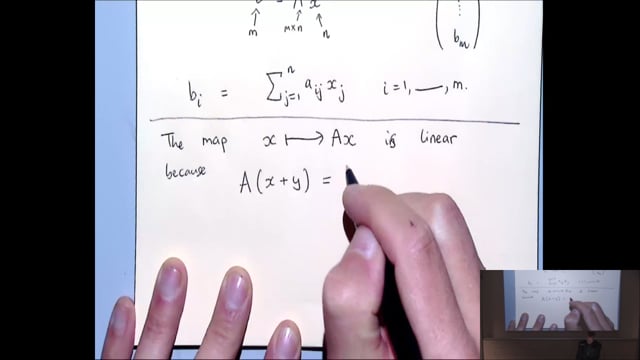 = A x
m m×n n
b_m
b_i = ∑_{j=1}^{n} a_{ij} x_j i=1, —, m.
The map x ⟼ Ax is linear
because A(x+y) =